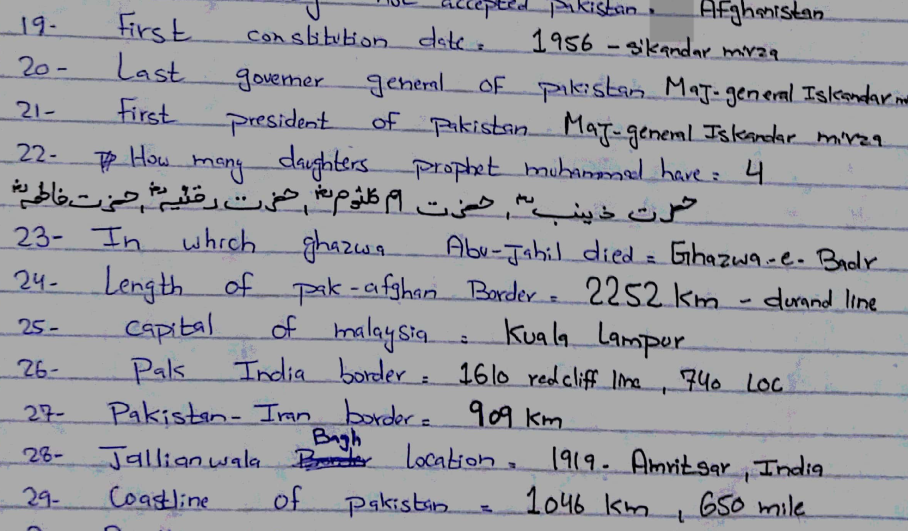 not accepted pakistan. Afghanistan
19- First constitution date = 1956 - sikandar mirza
20- Last governer general of pakistan Maj-general Iskandar
21- First president of Pakistan Maj-general Iskandar mirza
22- How many daughters prophet muhammad have = 4
حضرت ذینبؓ, حضرت ام کلثومؓ, حضرت رقیہؓ, حضرت فاطمہؓ
23- In which ghazwa Abu-Jahil died = Ghazwa-e-Badr
24- Length of pak-afghan Border = 2252 km - durand line
25- capital of malaysia = Kuala Lampur
26- Pak India border = 1610 redcliff line, 740 LOC
27- Pakistan-Iran border = 909 km
28- Jallianwala Bagh location = 1919- Amritsar, India
29- Coastline of pakistan = 1046 km, 650 mile